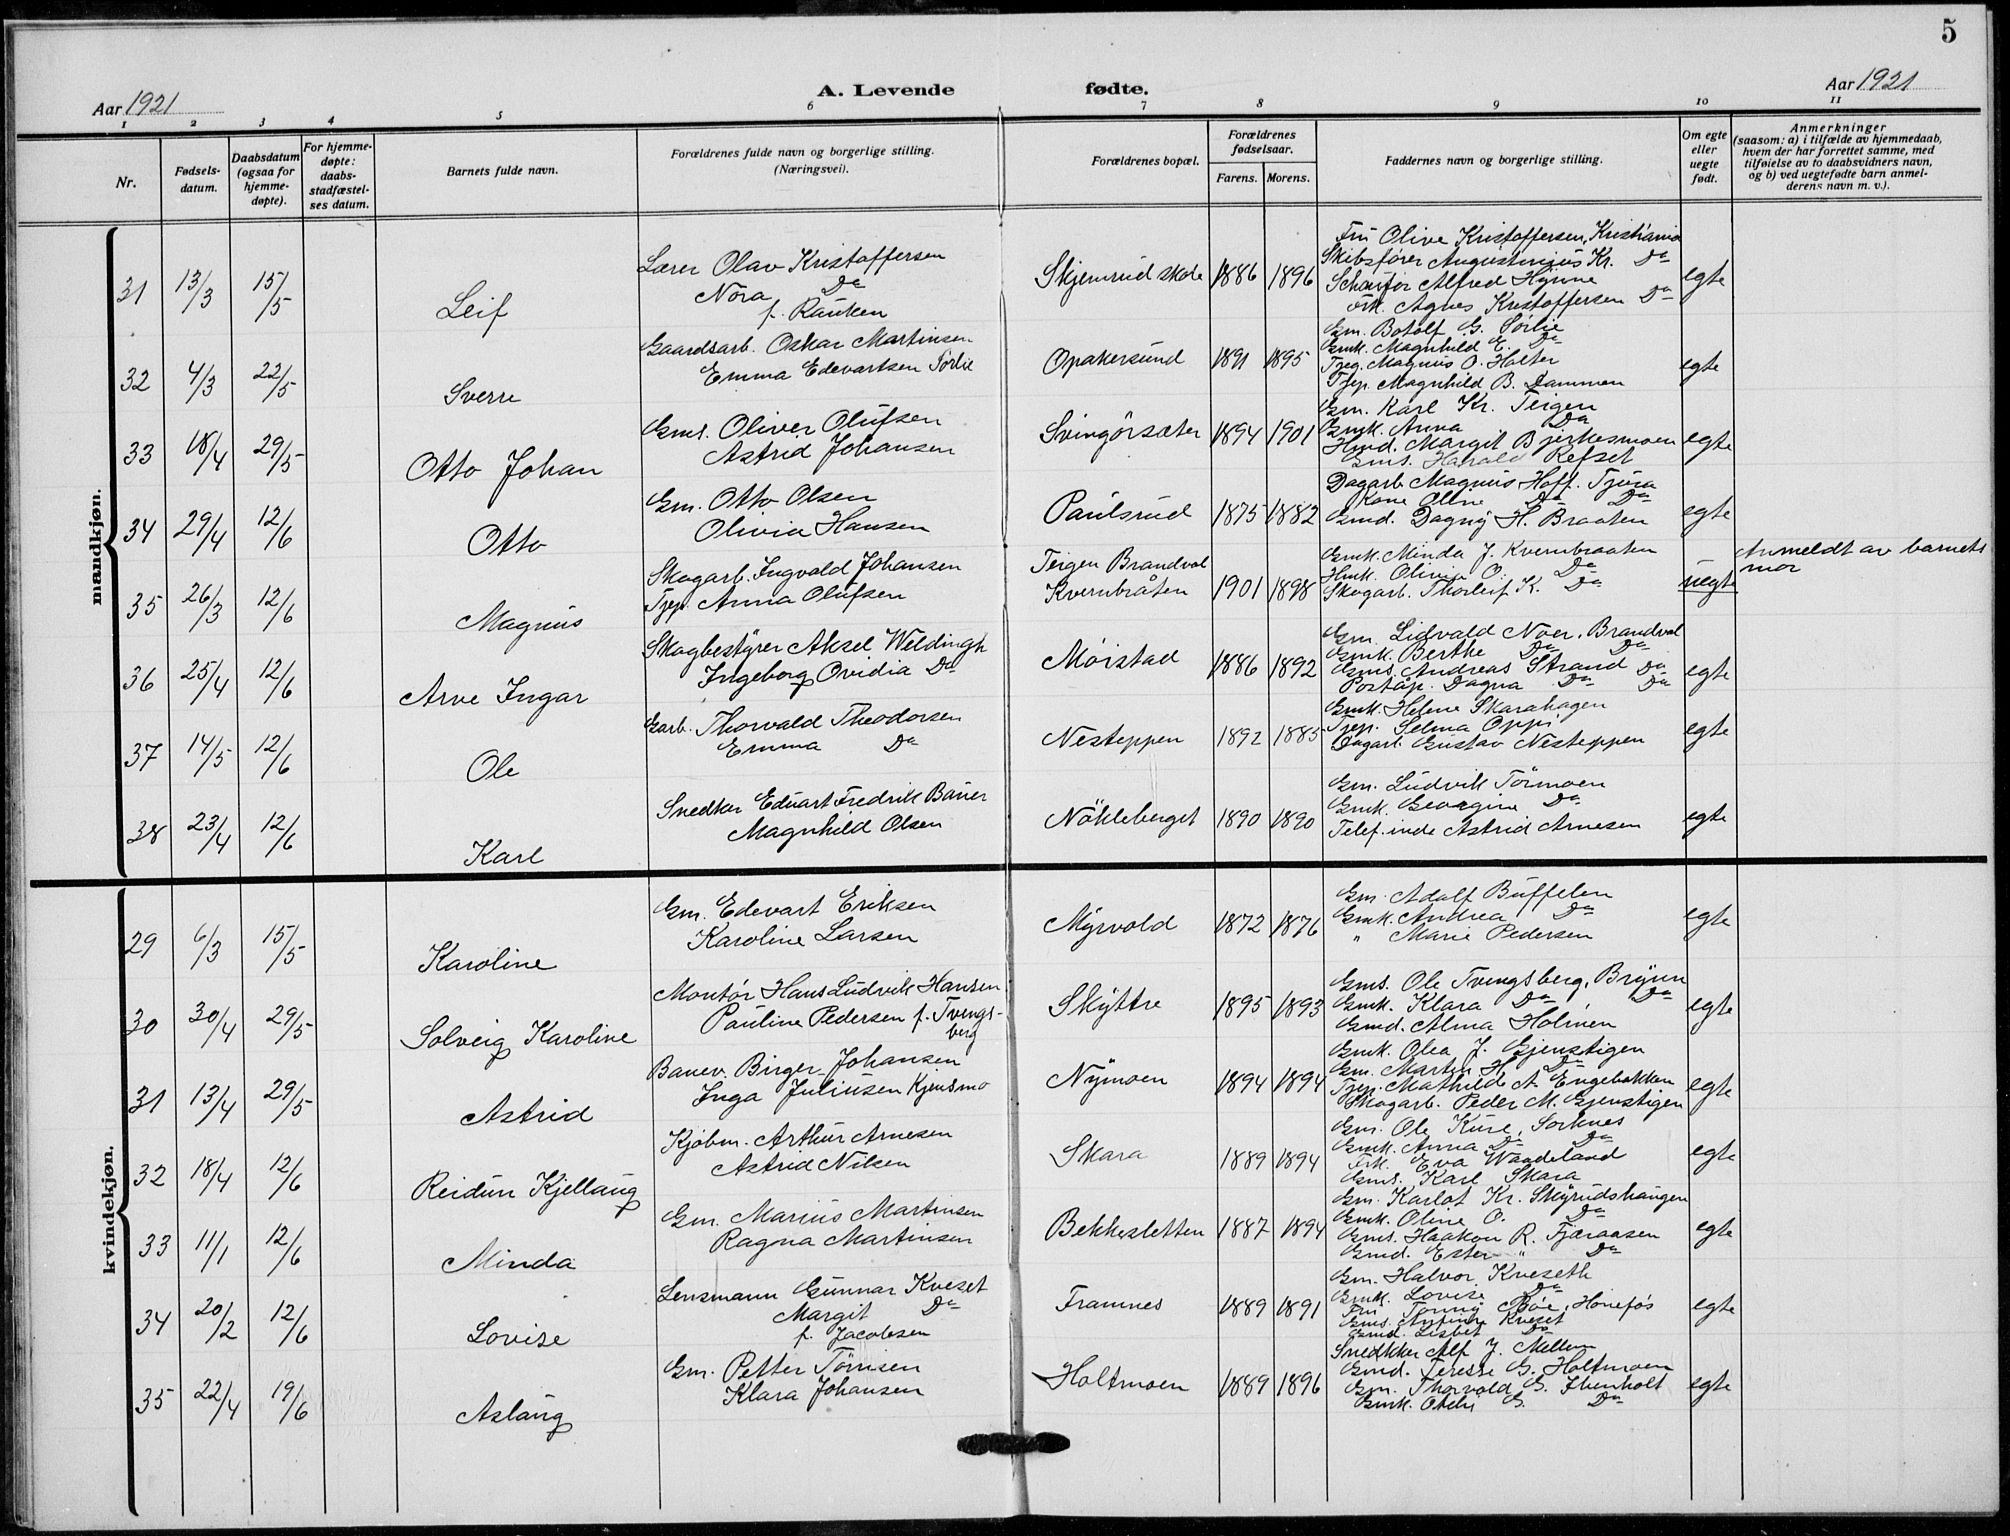 5
Aar 1921
A. Levende fødte.
Aar 1921
1 2 3 4 5 6 7 8 9 10 11
Nr.
Fødsels-
datum.
Daabsdatum
(ogsaa for
hjemme-
døpte).
For hjemme-
døpte:
daabs-
stadfæstel-
ses datum.
Barnets fulde navn.
Forældrenes fulde navn og borgerlige stilling.
(Næringsvei).
Forældrenes bopæl.
Forældrenes
fødselsaar.
Farens. Morens.
Faddernes navn og borgerlige stilling.
Om egte
eller
uegte
født.
Anmerkninger
(saasom: a) i tilfælde av hjemmedaab,
hvem der har forrettet samme, med
tilføielse av to daabsvidners navn,
og b) ved uegtefødte barn anmel-
derens navn m. v.).
mandkjøn.
31 13/3 15/5 Leif
Lærer Olav Kristoffersen
Nora Do
f. Rauken
Skjerrud skole 1886 1896
Fru Olive Kristoffersen, Kristiania
Skibsfører Augustinius Kr. Do
Schauför Alfred Hynne
Frk. Agnes Kristoffersen Do
egte
32 4/3 22/5 Sverre
Gaardsarb. Oskar Martinsen
Emma Edevartsen Sörlie
Opakersund 1891 1895
Gm. Botolf G. Sørlie
Gmk. Magnhild E. Do
Tjeg. Magnus O. Holter
Tjep. Magnhild B. Dammen
egte
33 18/4 29/5 Otto Johan
Gms. Oliver Olufsen
Astrid Johansen
Svingörsæter 1894 1901
Gm. Karl Kr. Teigen
Gmk. Anna Do
Hmd. Margit Bjerkesmoen
Gms. Harald Refset
egte
34 29/4 12/6 Otto
Gm. Otto Olsen
Olivia Hansen
Paulsrud 1875 1882
Dagarb. Magnus Hoff. Tjura
Kone Oline Do Do
Gmd. Dagny H. Braaten
egte
35 26/3 12/6 Magnus
Skogarb. Ingvald Johansen
Tjep. Anna Olufsen
Teigen Brandval
Kvernbråten 1901 1898
Gmk. Minda J. Kvernbraaten
Hmk. Olivia O. Do
Skogarb. Thorleif K. Do
uegte
Anmeldt av barnets
mor
36 25/4 12/6 Arve Ingar
Skogbestyrer Aksel Weldingh
Ingeborg Ovidia Do
Möistad 1886 1892
Gm. Lidvald Noer, Brandval
Gmk. Berthe Do Do
Gms. Andreas Strand Do
Poståp. Dagna Do Do
egte
37 14/5 12/6 Ole
Garb. Thorvald Theodorsen
Emma Do
Nesteppen 1892 1885
Gmk. Helene Skarahagen
Tjep. Selma Oppi
Dagarb. Gustav Nesteppen
egte
38 23/4 12/6 Karl
Snedker Eduart Fredrik Bauer
Magnhild Olsen
Nökleberget 1890 1890
Gm. Ludvik Törmoen
Gmk. Georgine Do
Telef.inde Astrid Arnesen
egte
kvindekjøn.
29 6/3 15/5 Karoline
Gm. Edevart Eriksen
Karoline Larsen
Myrvold 1872 1876
Gm. Adolf Buffelen
Gmk. Andrea Do
" Marie Pedersen
egte
30 30/4 29/5 Solveig Karoline
Montör Hans Ludvik Hansen
Pauline Pedersen f. Tvengs-
berg
Skyttre 1895 1893
Gms. Ole Tvengsberg, Brynn
Gmk. Klara Do Do
Gmd. Alma Holmen
egte
31 13/4 29/5 Astrid
Banev. Birger Johansen
Inga Juliusen Kjensmo
Nymoen 1894 1894
Gmk. Olea J. Gjenstigen
Gm. Martin H. Do
Tjep. Mathilde A. Engebakken
Skogarb. Peder M. Gjenstigen
egte
32 18/4 12/6 Reidun Kjellaug
Kjøbm. Arthur Arnesen
Astrid Nilsen
Skara 1889 1894
Gm. Ole Kure, Sorknes
Gmk. Anna Do Do
Frk. Eva Waadeland
Gms. Karl Skara
egte
33 11/1 12/6 Minda
Gm. Marius Martinsen
Ragna Martinsen
Bekkesletten 1887 1894
Gm. Karlot Kr. Skyrudshaugen
Gmk. Oline O. Do
Gms. Haakon R. Fjæraasen
Gmd. Ester " Do
egte
34 20/2 12/6 Lovise
Lensmann Gunnar Kveset
Margit Do
f. Jacobsen
Framnes 1889 1891
Gm. Halvor Kveseth
Gmk. Lovise Do
Fru Tonny Böe, Hönefos
Gms. Kveset
Gmd. Lisbet Do
egte
35 22/4 19/6 Aslaug
Gm. Petter Tørrisen
Klara Johansen
Holtmoen 1889 1896
Snedkker Alf J. Mellem
Gmd. Terese G. Holtmoen
Gm. Thorvald G. Ibenholt
Gmk. G. Do
egte